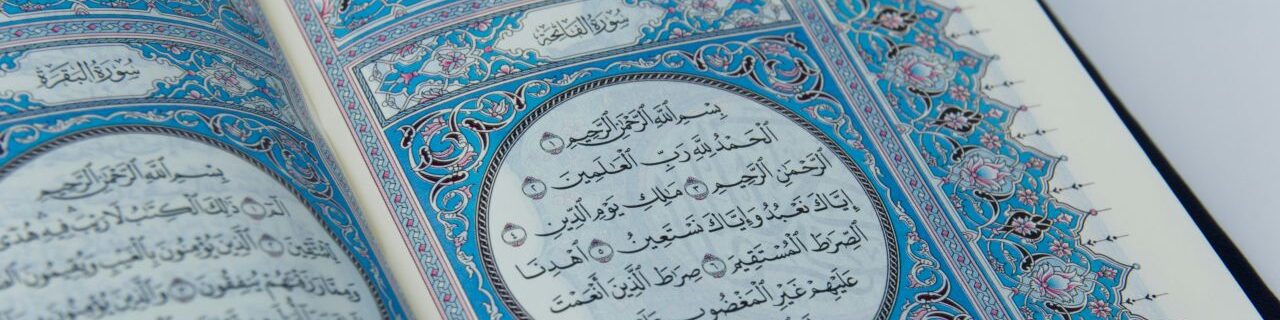 سُورَةُ الفَاتِحَةِ
بِسْمِ ٱللَّهِ ٱلرَّحْمَٰنِ ٱلرَّحِيمِ ١
ٱلْحَمْدُ لِلَّهِ رَبِّ ٱلْعَٰلَمِينَ ٢
ٱلرَّحْمَٰنِ ٱلرَّحِيمِ ٣ مَٰلِكِ يَوْمِ ٱلدِّينِ ٤
إِيَّاكَ نَعْبُدُ وَإِيَّاكَ نَسْتَعِينُ ٥ ٱهْدِنَا
ٱلصِّرَٰطَ ٱلْمُسْتَقِيمَ ٦ صِرَٰطَ ٱلَّذِينَ أَنْعَمْتَ
عَلَيْهِمْ غَيْرِ ٱلْمَغْضُوبِ
سُورَةُ البَقَرَةِ
بِسْمِ ٱللَّهِ ٱلرَّحْمَٰنِ ٱلرَّحِيمِ
الٓمٓ ١ ذَٰلِكَ ٱلْكِتَٰبُ لَا رَيْبَ فِيهِ هُدًى
لِّلْمُتَّقِينَ ٢ ٱلَّذِينَ يُؤْمِنُونَ بِٱلْغَيْبِ وَيُقِيمُونَ
وَمِمَّا رَزَقْنَٰهُمْ يُنفِقُونَ ٣ وَٱلَّذِينَ يُؤْمِنُونَ